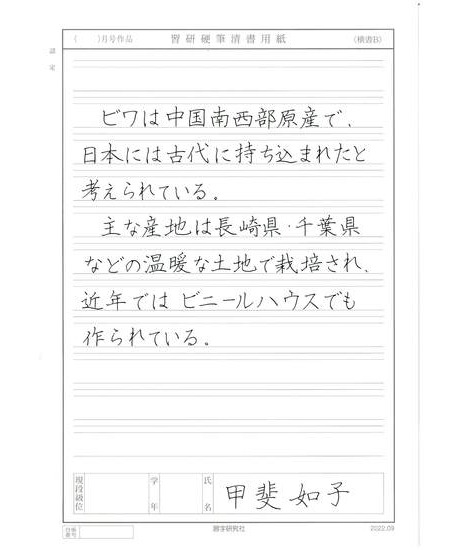 （　　）月号作品　習研硬筆清書用紙　（横書B）
認定
ビワは中国南西部原産で、
日本には古代に持ち込まれたと
考えられている。
主な産地は長崎県・千葉県
などの温暖な土地で栽培され、
近年では ビニールハウスでも
作られている。
現段級位
学年
氏名
甲斐 如子
習字研究社
2022.09